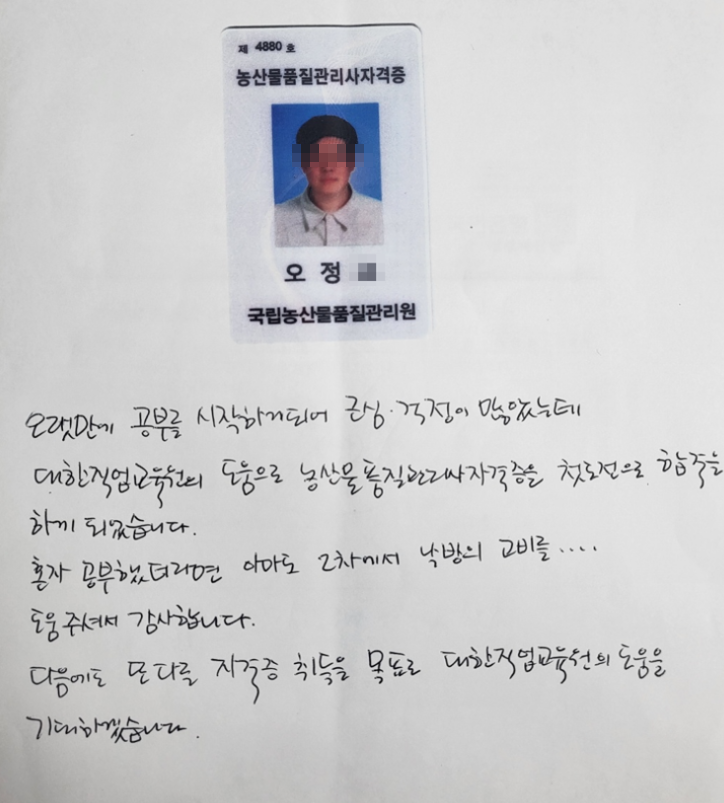 제 4880 호
농산물품질관리사자격증
오 정
국립농산물품질관리원
오랫만에 공부를 시작하게되어 근심·걱정이 많았는데
대한직업교육원의 도움으로 농산물품질관리사자격증을 첫도전으로 합격을
하게 되었습니다.
혼자 공부했더라면 아마도 2차에서 낙방의 고비를....
도움주셔서 감사합니다.
다음에도 또다른 자격증 취득을 목표로 대한직업교육원의 도움을
기대하겠습니다.